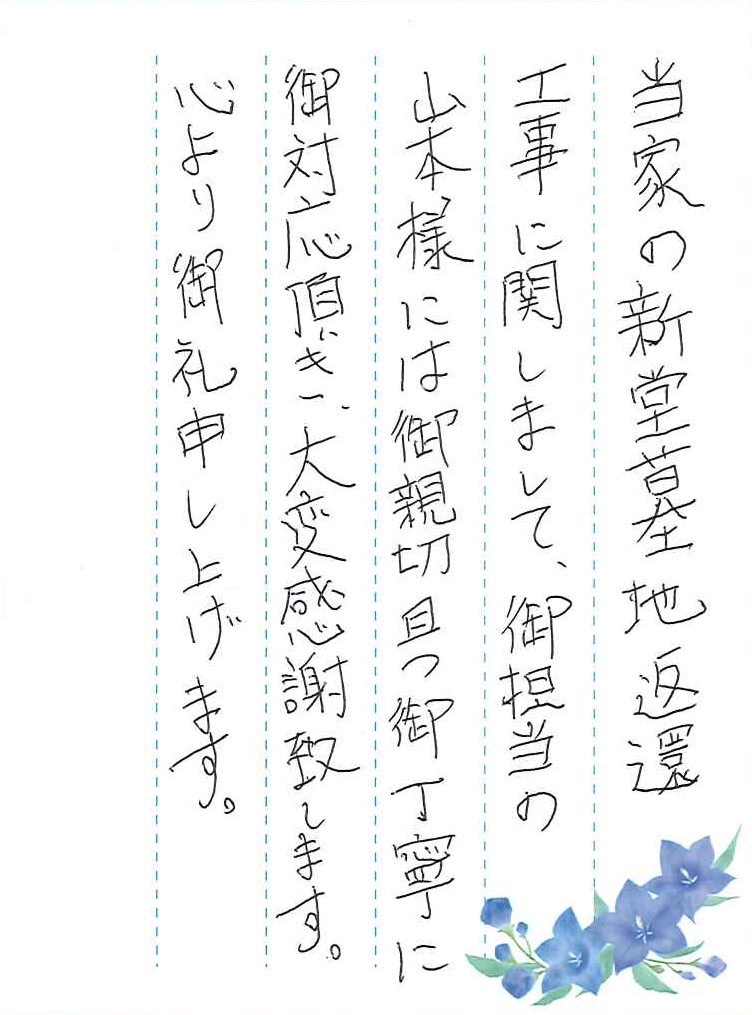 当家の新堂墓地返還
工事に関しまして、御担当の
山本様には御親切且つ御丁寧に
御対応頂き、大変感謝致します。
心より御礼申し上げます。